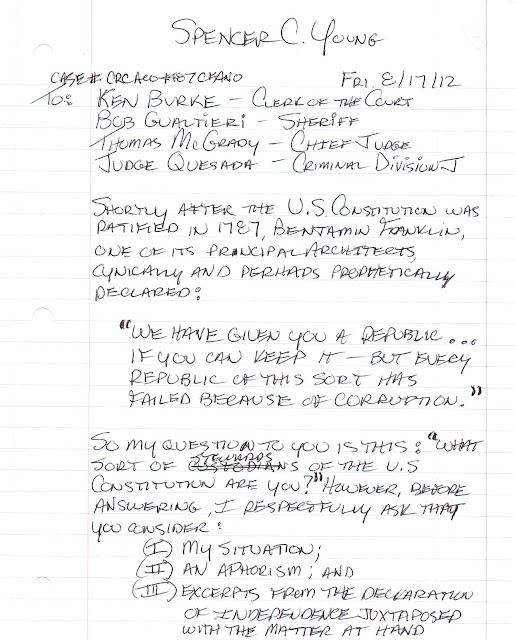 SPENCER C. YOUNG
CASE #: CRC
FRI. 8/17/12
TO: KEN BURKE – CLERK OF THE COURT
BOB GUALTIERI – SHERIFF
THOMAS MCGRADY – CHIEF JUDGE
JUDGE QUESADA – CRIMINAL DIVISION J
SHORTLY AFTER THE U.S. CONSTITUTION WAS
RATIFIED IN 1787, BENJAMIN FRANKLIN,
ONE OF ITS PRINCIPAL ARCHITECTS,
CYNICALLY AND PERHAPS PROPHETICALLY
DECLARED:
"WE HAVE GIVEN YOU A REPUBLIC...
IF YOU CAN KEEP IT – BUT EVERY
REPUBLIC OF THIS SORT HAS
FAILED BECAUSE OF CORRUPTION."
SO MY QUESTION TO YOU IS THIS: "WHAT
SORT OF STEWARDS OF THE U.S
CONSTITUTION ARE YOU?" HOWEVER, BEFORE
ANSWERING, I RESPECTFULLY ASK THAT
YOU CONSIDER:
(I) MY SITUATION;
(II) AN APHORISM; AND
(III) EXCERPTS FROM THE DECLARATION
OF INDEPENDENCE JUXTAPOSED
WITH THE MATTER AT HAND